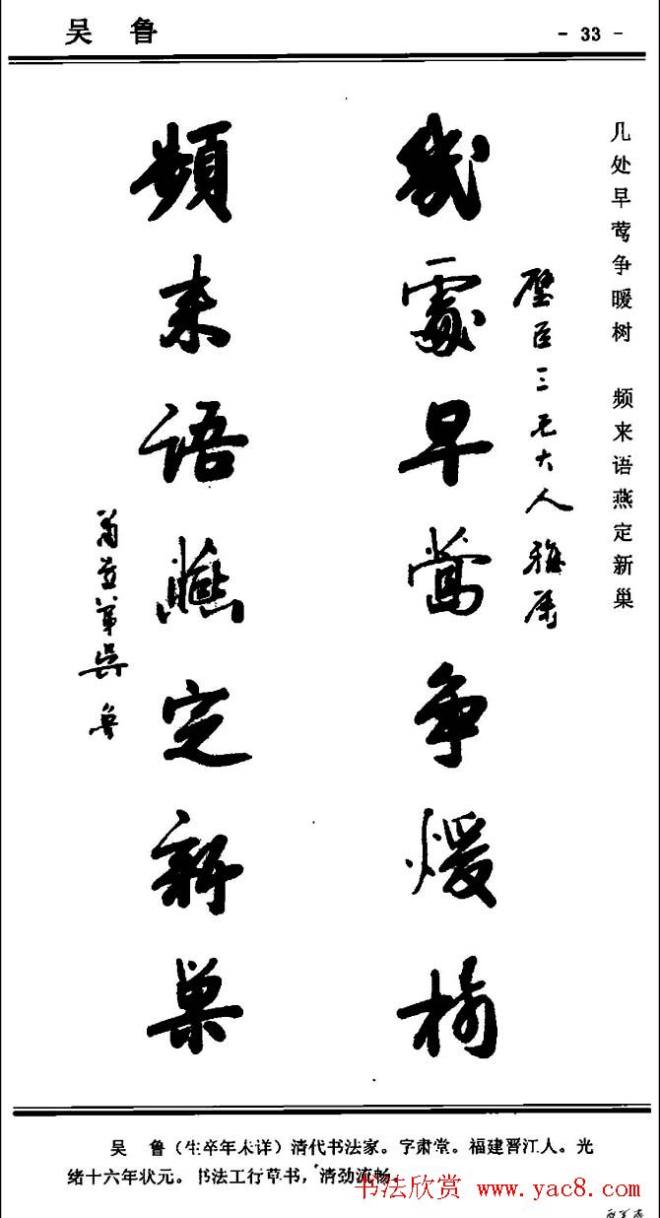 吴 鲁
- 33 -
几处早莺争暖树 频来语燕定新巢
璧臣三兄大人雅属
幾處早莺争煖樹
頻来語燕定新巢
肅堂弟吴魯
吴 鲁（生卒年未详）清代书法家。字肃堂。福建晋江人。光
绪十六年状元。书法工行草书，清劲流畅。
书法欣赏 www.yac8.com